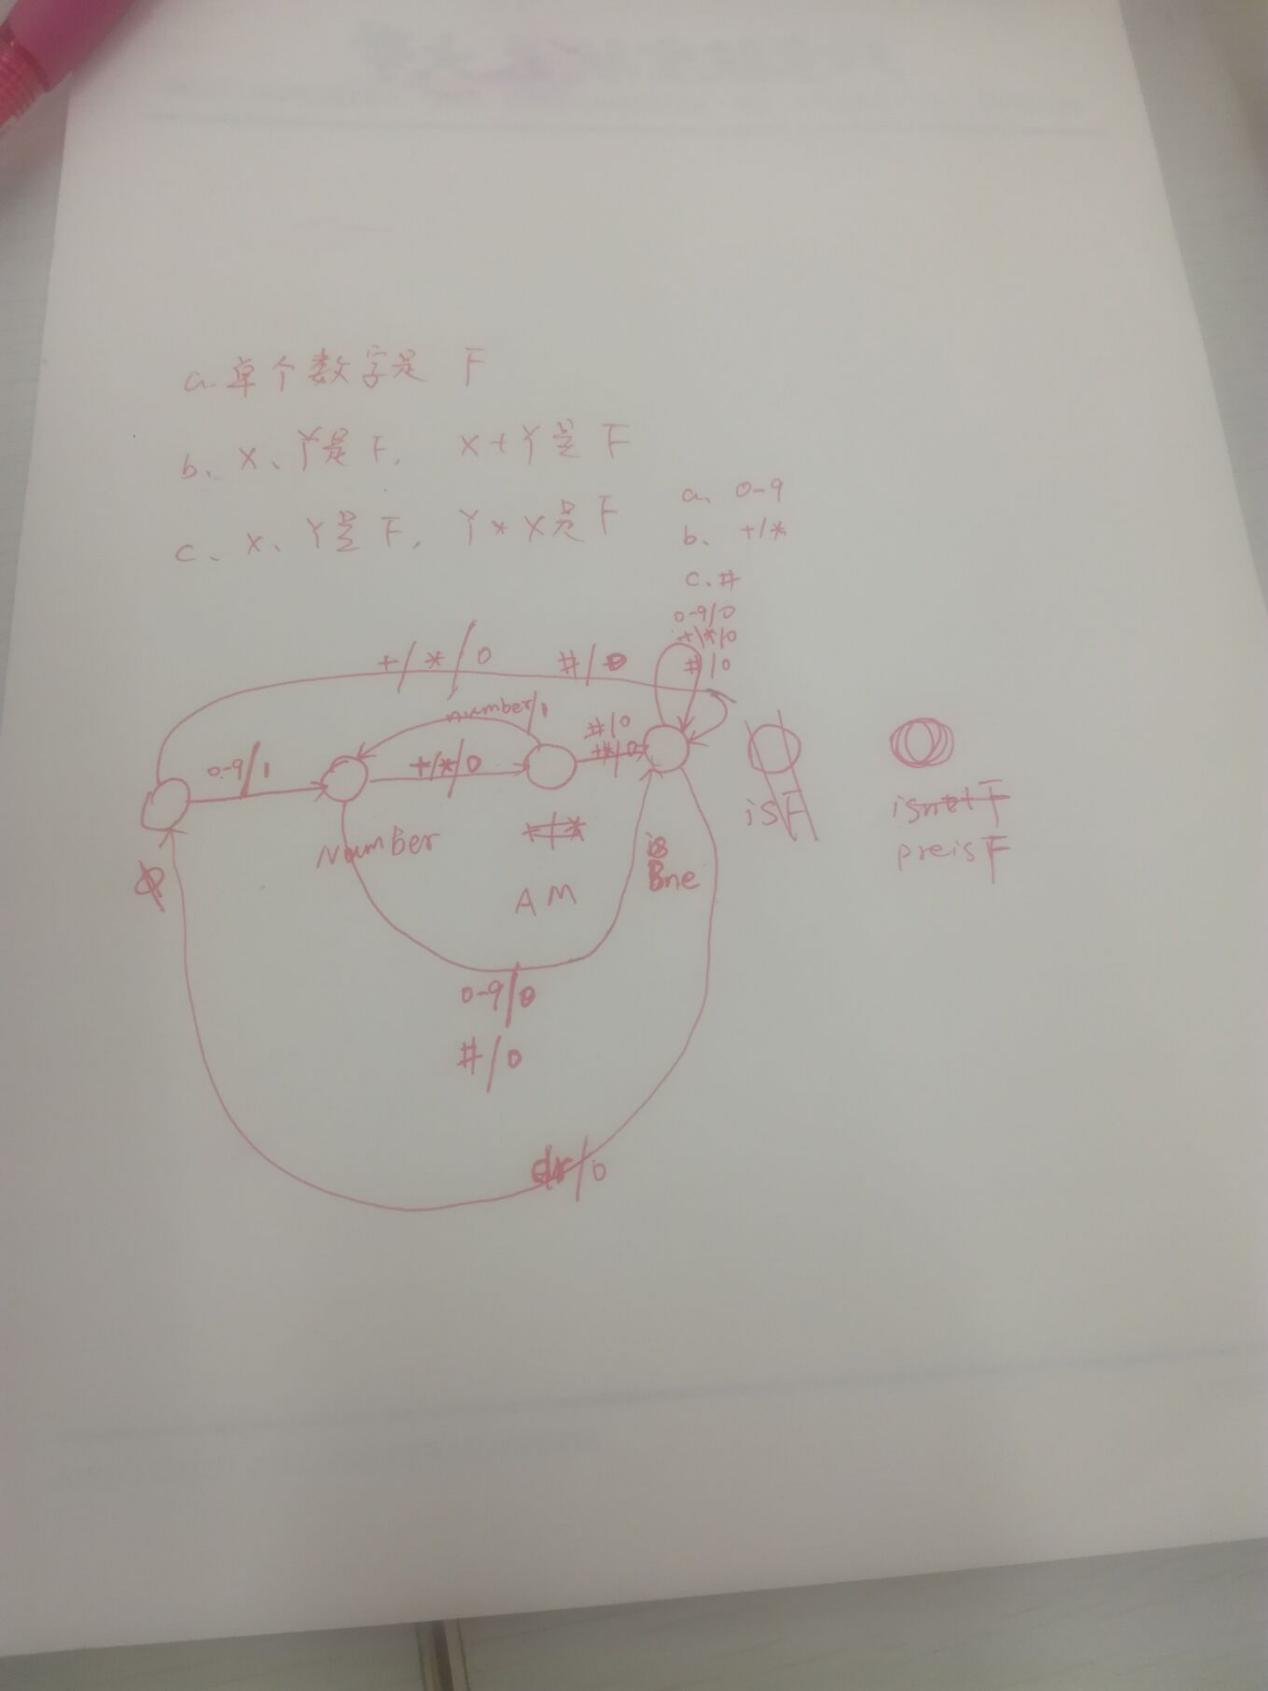 a. 单个数字是 F
b、X、Y是 F, X+Y是 F
c、X、Y是 F, Y*X是 F
a、0-9
b、+/*
c.#
0-9/0
+/*/0
#/0
+/*/0 #/0
number/1
#/0
+/*/0
0-9/1
+/*/0
Number
AM
isF
preis F
0-9/0
#/0
/0